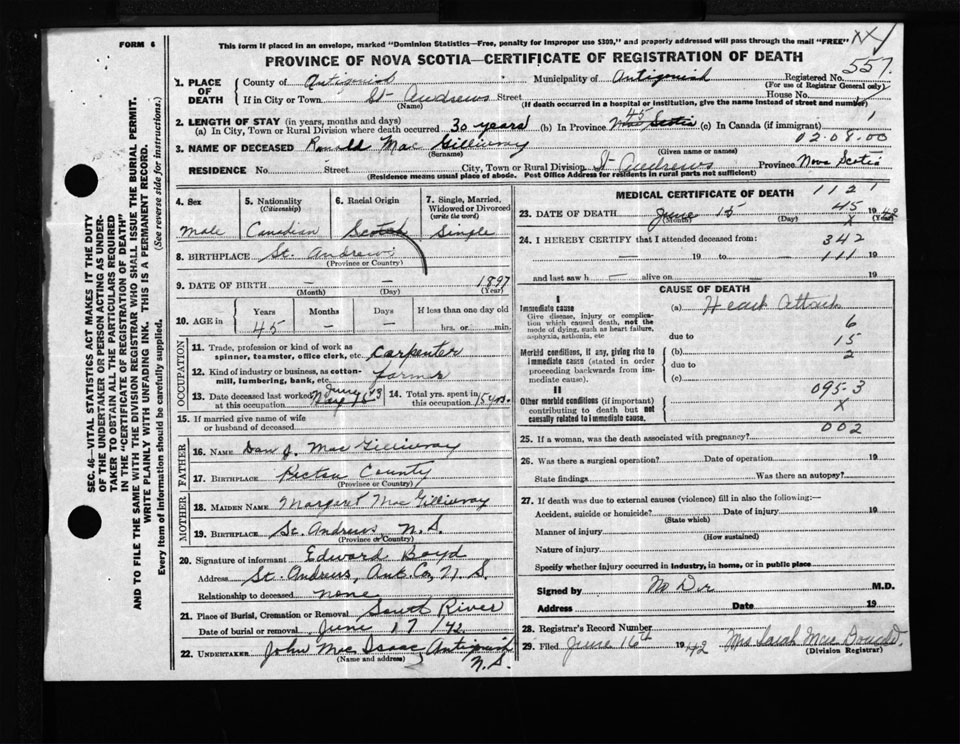 FORM 6
This form if placed in an envelope, marked "Dominion Statistics—Free, penalty for improper use $300," and properly addressed will pass through the mail "FREE"
PROVINCE OF NOVA SCOTIA—CERTIFICATE OF REGISTRATION OF DEATH
557.
1. PLACE OF DEATH County of Antigonish Municipality of Antigonish Registered No.
(For use of Registrar General only)
If in City or Town St Andrews Street House No.
(Name) (If death occurred in a hospital or institution, give the name instead of street and number)
2. LENGTH OF STAY (in years, months and days)
45 1
(a) In City, Town or Rural Division where death occurred 30 years (b) In Province Nova Scotia (c) In Canada (if immigrant)
02.08.00
3. NAME OF DECEASED Ronald Mac Gillivray
(Surname) (Given name or names)
RESIDENCE No. Street City, Town or Rural Division St Andrews Province Nova Scotia
(Residence means usual place of abode. Post Office Address for residents in rural parts not sufficient)
4. Sex 5. Nationality (Citizenship) 6. Racial Origin 7. Single, Married, Widowed or Divorced (write the word)
Male Canadian Scotch Single
8. BIRTHPLACE St. Andrews
(Province or Country)
9. DATE OF BIRTH — — 1897
(Month) (Day) (Year)
10. AGE in Years Months Days If less than one day old
45 — — hrs. or min.
OCCUPATION
11. Trade, profession or kind of work as spinner, teamster, office clerk, etc. Carpenter
12. Kind of industry or business, as cotton-mill, lumbering, bank, etc. farmer
13. Date deceased last worked at this occupation June 14. Total yrs. spent in this occupation 15 yrs.
15. If married give name of wife or husband of deceased
FATHER
16. NAME Dan J. Mac Gillivray
17. BIRTHPLACE Pictou County
(Province or Country)
MOTHER
18. MAIDEN NAME Margert Mac Gillivray
19. BIRTHPLACE St. Andrews, N.S.
(Province or Country)
20. Signature of informant Edward Boyd
Address St. Andrews, Ant. Co, N.S
Relationship to deceased none
21. Place of Burial, Cremation or Removal South River
Date of burial or removal June 17 /42
22. UNDERTAKER John Mac Isaac Antigonish N.S.
(Name and address)
MEDICAL CERTIFICATE OF DEATH
1121
23. DATE OF DEATH June 15 45 1942
(Month) (Day) X (Year)
24. I HEREBY CERTIFY that I attended deceased from: 342
— 19 to — 111 19
and last saw h — alive on 19
CAUSE OF DEATH
I
Immediate cause (a) Heart Attack
Give disease, injury or complication which caused death, not the mode of dying, such as heart failure, asphyxia, asthenia, etc
6
due to 15
Morbid conditions, if any, giving rise to immediate cause (stated in order proceeding backwards from immediate cause).
(b) 2
due to
(c)
II
095-3
Other morbid conditions (if important) contributing to death but not causally related to immediate cause.
X
002
25. If a woman, was the death associated with pregnancy?
26. Was there a surgical operation? Date of operation
State findings Was there an autopsy?
27. If death was due to external causes (violence) fill in also the following:—
Accident, suicide or homicide? Date of injury 19
(State which)
Manner of injury
(How sustained)
Nature of injury
Specify whether injury occurred in industry, in home, or in public place
Signed by No Dr M.D.
Address Date 19
28. Registrar's Record Number
29. Filed June 16th 1942 Mrs Sarah Mac
(Division Registrar)
SEC. 46—VITAL STATISTICS ACT MAKES IT THE DUTY
OF THE UNDERTAKER OR PERSON ACTING AS UNDER-
TAKER TO OBTAIN ALL THE PARTICULARS REQUIRED
IN THE "CERTIFICATE OF REGISTRATION OF DEATH"
AND TO FILE THE SAME WITH THE DIVISION REGISTRAR WHO SHALL ISSUE THE BURIAL PERMIT.
WRITE PLAINLY WITH UNFADING INK. THIS IS A PERMANENT RECORD.
Every item of information should be carefully supplied. (See reverse side for instructions.)